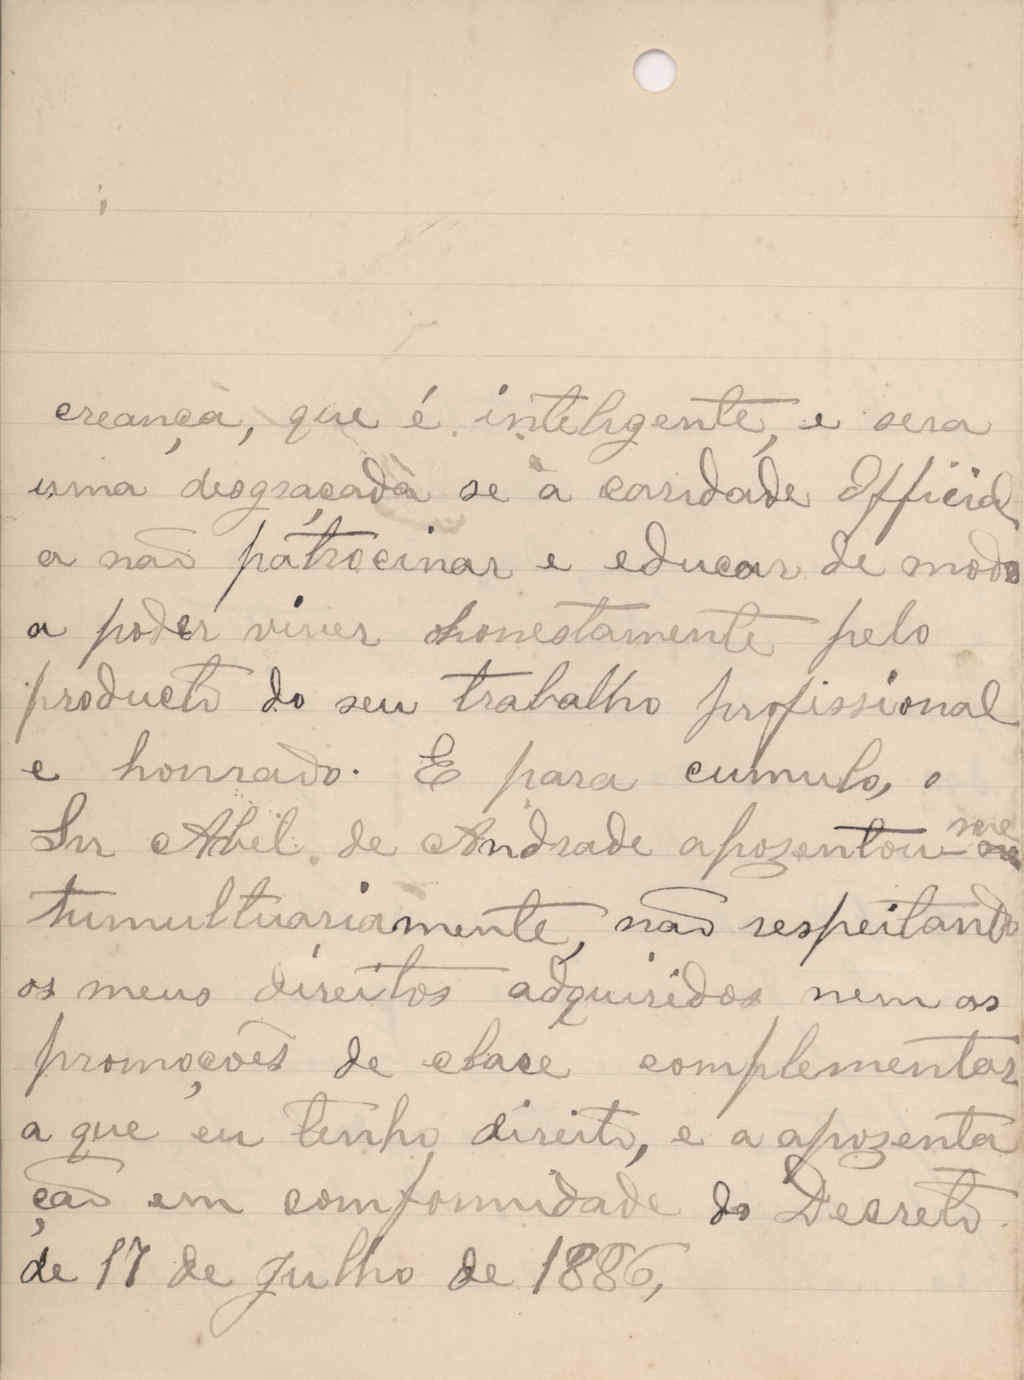 creança, que é inteligente, e sera
uma desgraçada se a caridade Official
a não patrocinar e educar de modo
a poder viver honestamente pelo
producto do seu trabalho profissional
e honrado. E para cumulo, o
Snr Abel de Andrade apozentou-me
tumultuariamente, não respeitando
os meus direitos adquiridos nem as
promoções de clace complementar
a que eu tenho direito, e a apozenta
ção em comformidade do Decreto
de 17 de Julho de 1886,